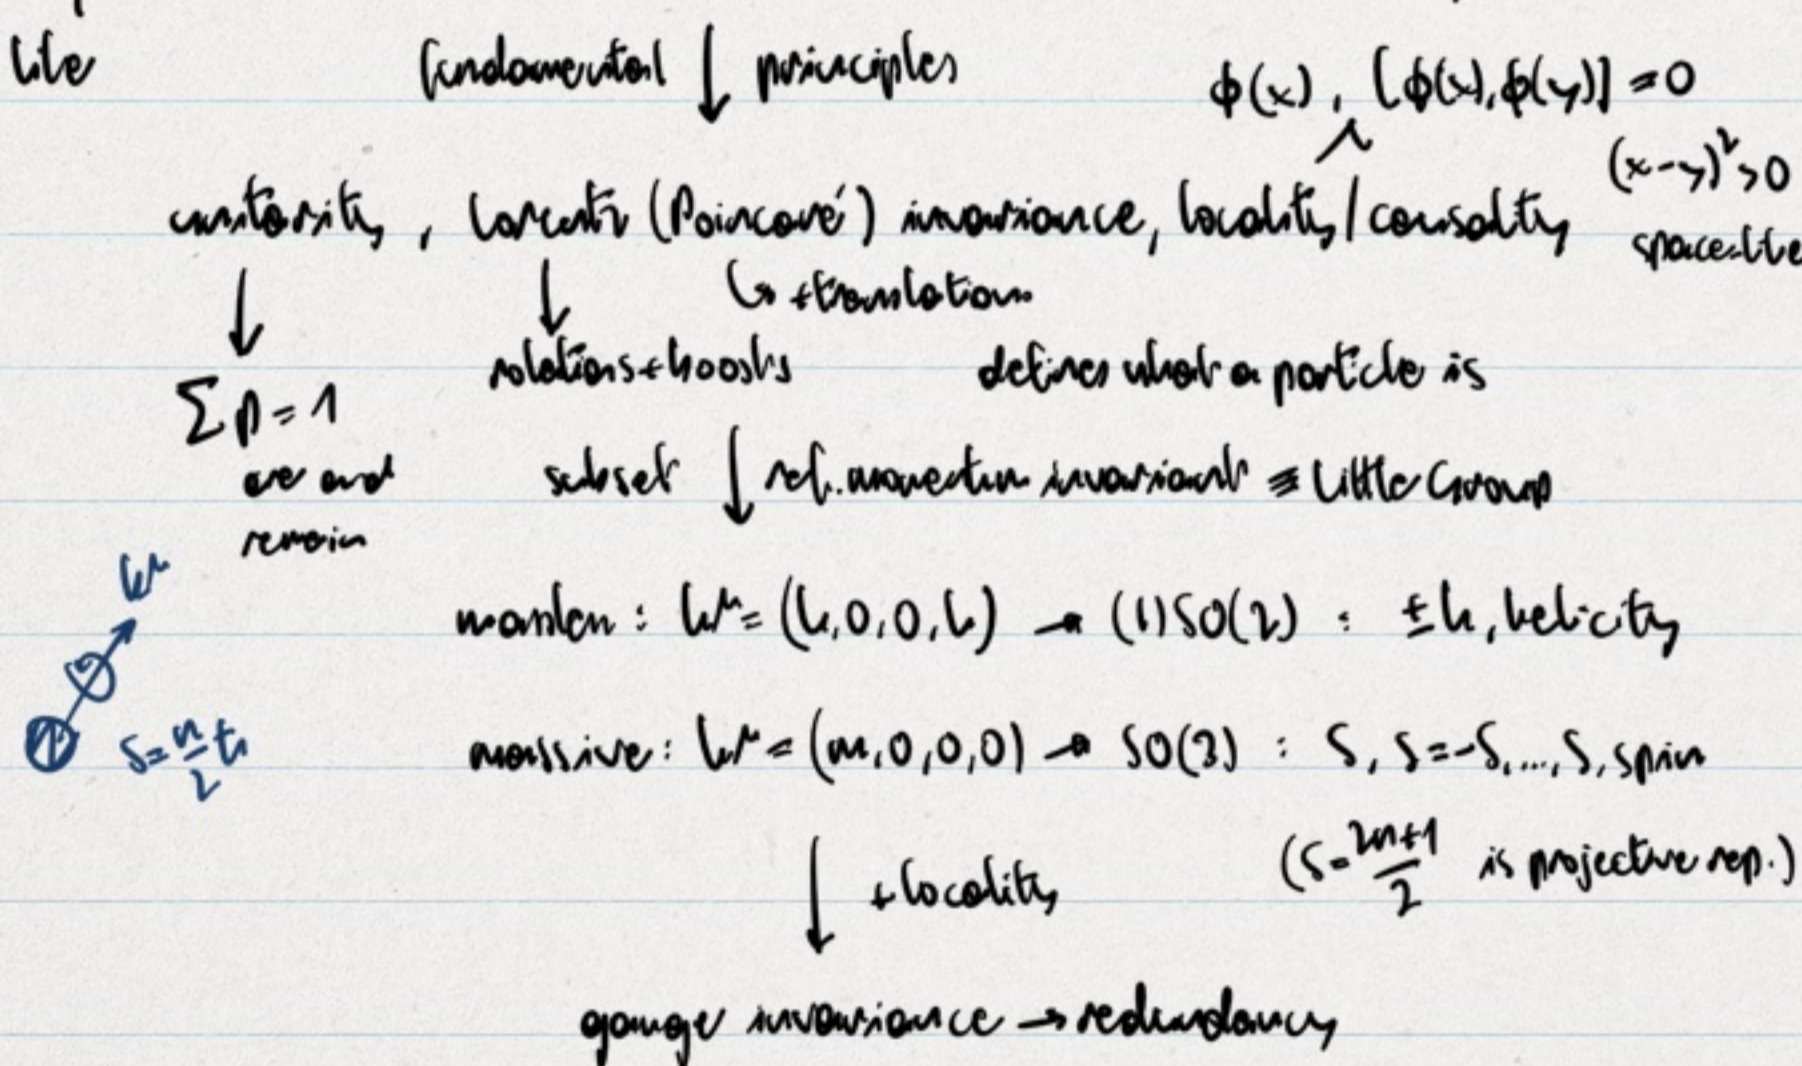 like
fundamental ↓ principles
ϕ(x), [ϕ(x),ϕ(y)] = 0
(x-y)²>0
space-like
unitarity, Lorentz (Poincaré) invariance, locality/causality
↳ +translations
rotations+boosts defines what a particle is
∑ p = 1
are and
remain
subset ↓ ref. momentum invariant ≡ Little Group
k^μ
massless: k^μ = (k,0,0,k) → (I)SO(2) : ±h, helicity
massive: k^μ = (m,0,0,0) → SO(3) : S, s=-S,...,S, spin
S = n/2 ħ
(S = 2n+1/2 is projective rep.)
↓ +locality
gauge invariance → redundancy